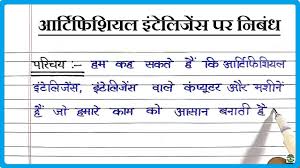 आर्टिफिशियल इंटेलिजेंस पर निबंध
परिचय :- हम कह सकते हैं कि आर्टिफिशियल
इंटेलिजेंस, इंटेलिजेंस वाले कंप्यूटर और मशीनें
हैं जो हमारे काम को आसान बनाती है